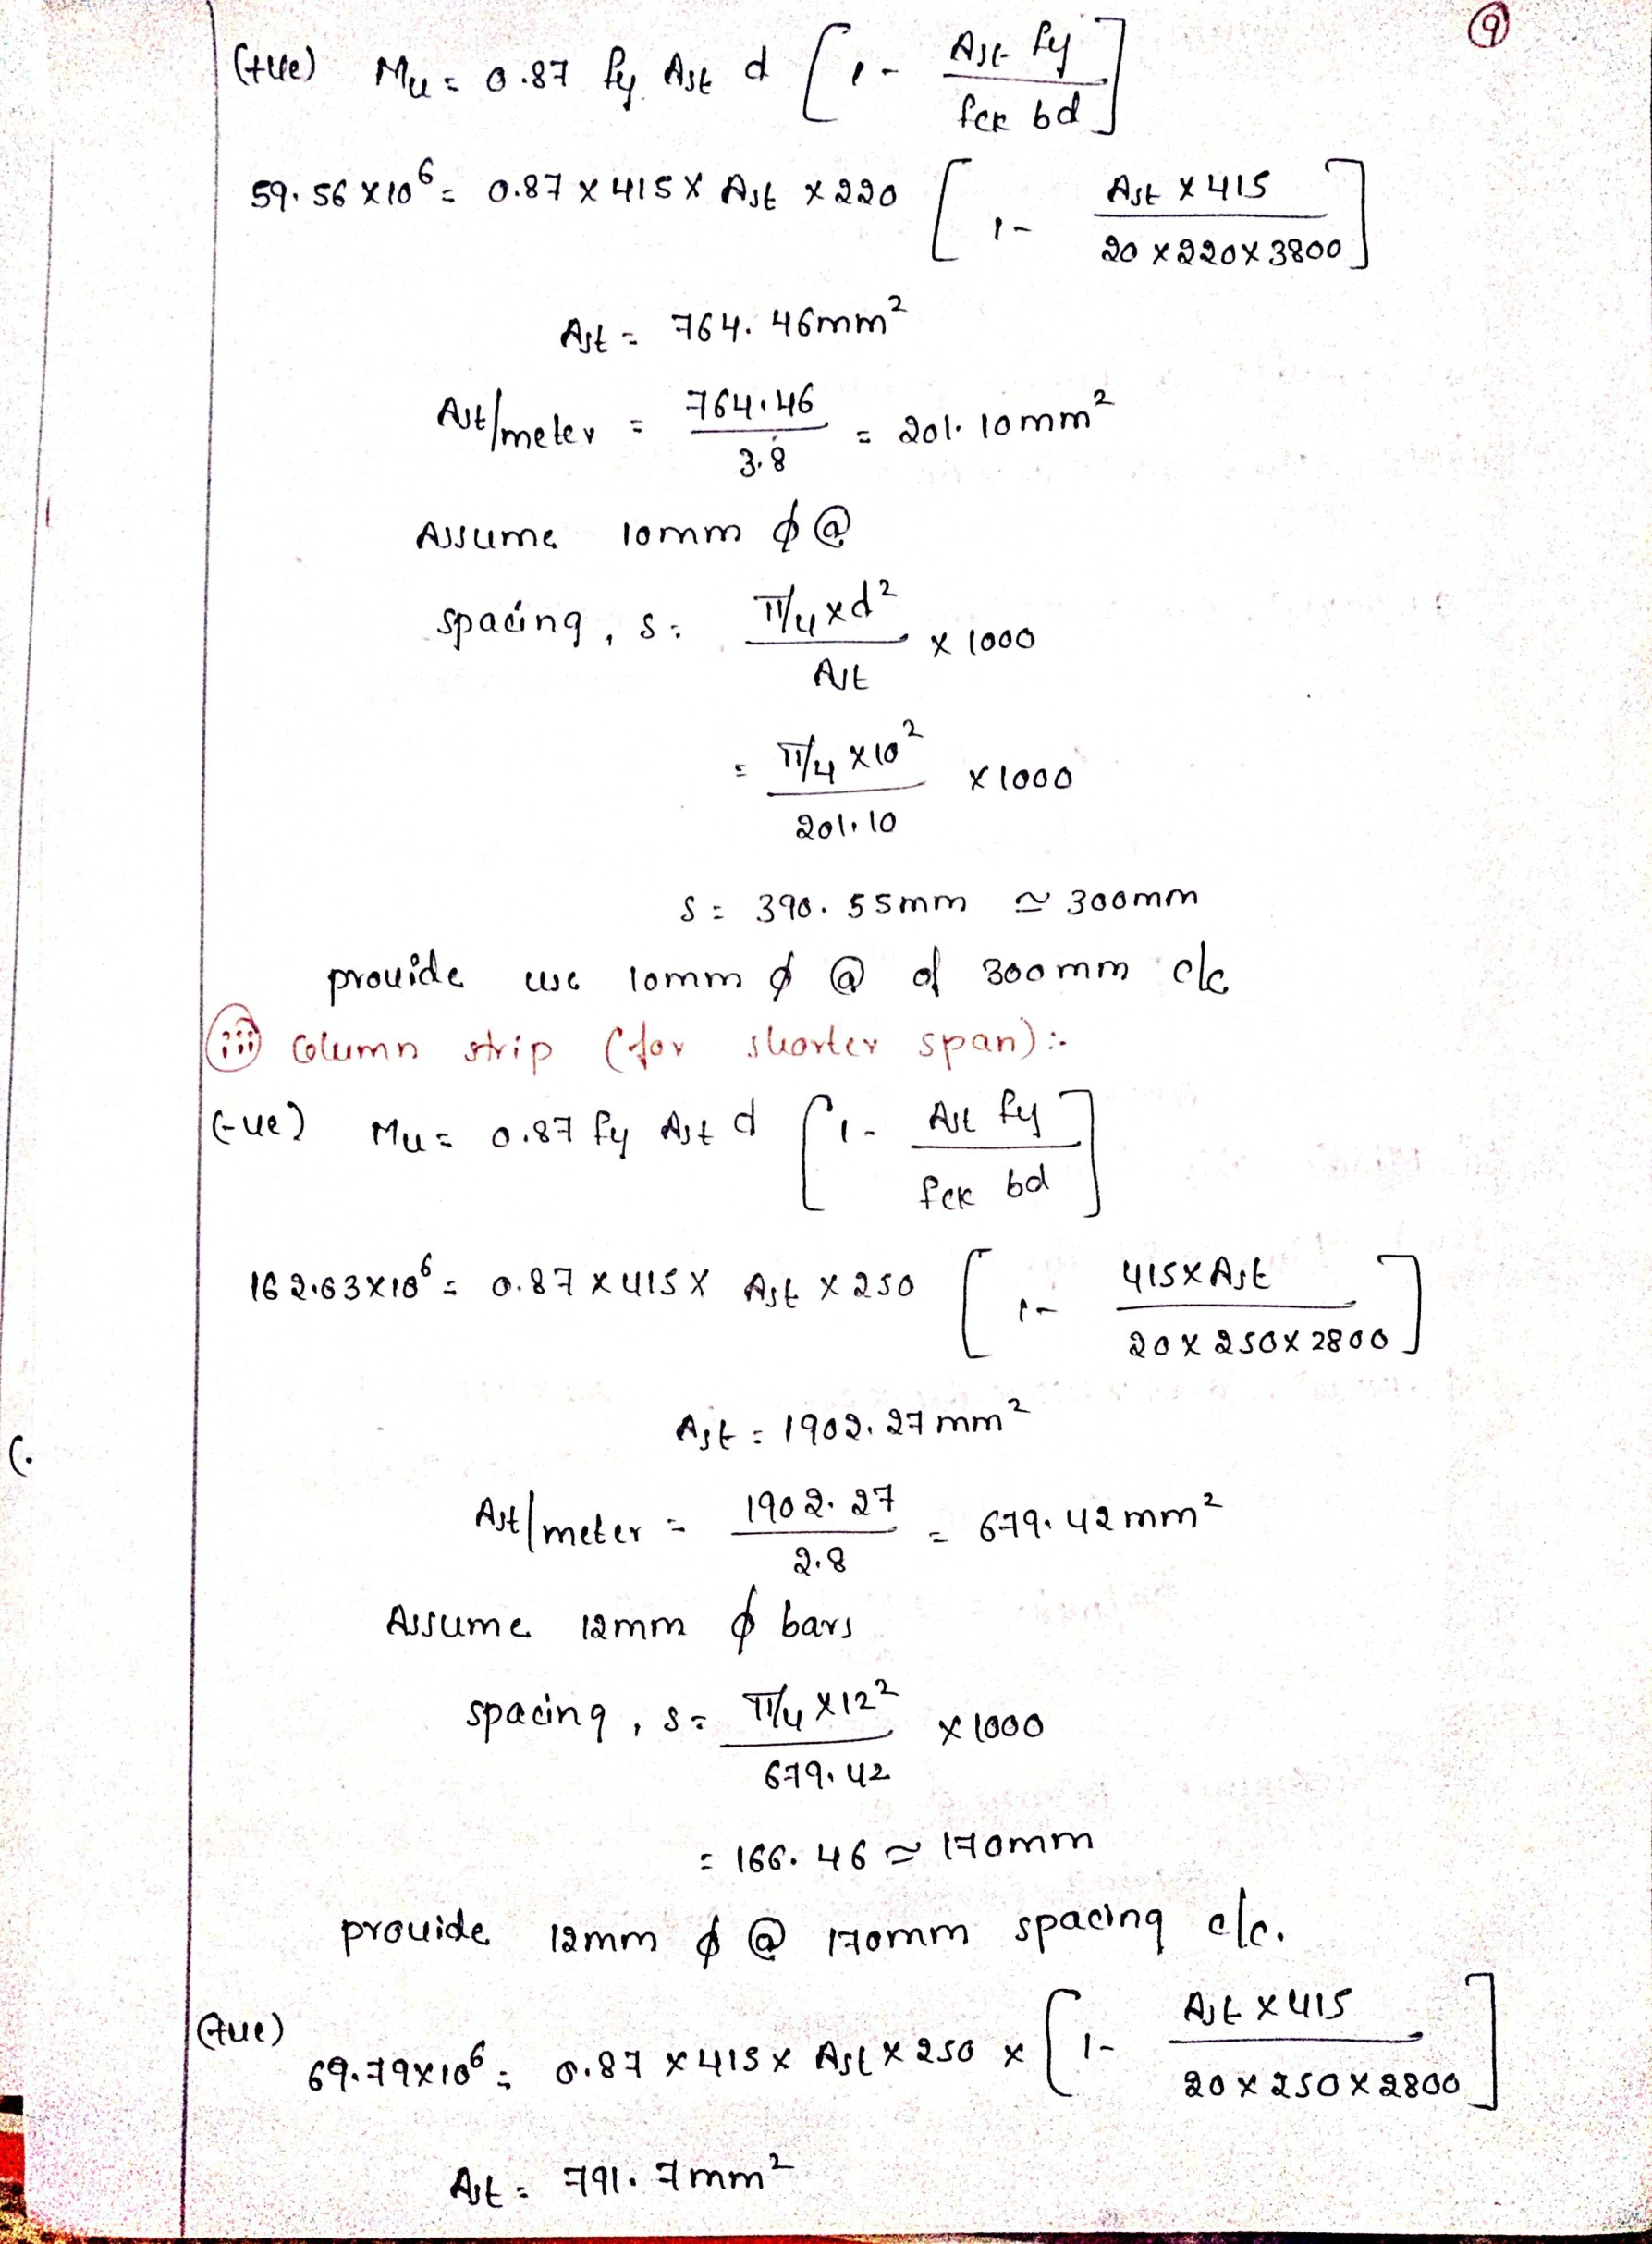 9
(+ve) Mu = 0.87 fy Ast d [1 - Ast fy / fck bd]
59.56 x 10⁶ = 0.87 x 415 x Ast x 220 [1 - Ast x 415 / 20 x 220 x 3800]
Ast = 764.46mm²
Ast/meter = 764.46 / 3.8 = 201.10mm²
Assume 10mm ϕ @
spacing, s = π/4 x d² / Ast x 1000
= π/4 x 10² / 201.10 x 1000
s = 390.55mm ≃ 300mm
provide use 10mm ϕ @ of 300mm c/c
iii) column strip (for shorter span):-
(-ve) Mu = 0.87 fy Ast d [1 - Ast fy / fck bd]
162.63 x 10⁶ = 0.87 x 415 x Ast x 250 [1 - 415 x Ast / 20 x 250 x 2800]
Ast = 1902.27mm²
Ast/meter = 1902.27 / 2.8 = 679.42mm²
Assume 12mm ϕ bars
spacing, s = π/4 x 12² / 679.42 x 1000
= 166.46 ≃ 170mm
provide 12mm ϕ @ 170mm spacing c/c.
(+ve)
69.79 x 10⁶ = 0.87 x 415 x Ast x 250 x [1 - Ast x 415 / 20 x 250 x 2800]
Ast = 791.7mm²